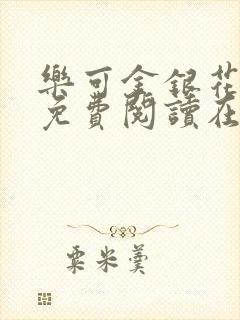 樂可金銀花
免費閱讀在
粟米羹